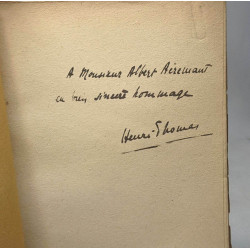 A Monsieur Albert Aéremant
en bien sincère hommage
Henri Thomas